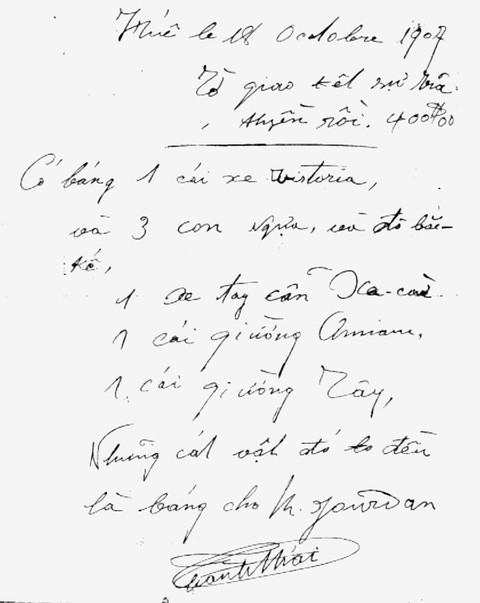 Huế le 18 Octobre 1907
Tờ giao kết sự trả
thuyền rồi. 400$00
Có báng 1 cái xe victoria,
và 3 con ngựa, và đồ bắc-
kế,
1 xe tay cẩn Xa-cừ.
1 cái giường Annam,
1 cái giường Tây,
Những cát vật đó đều
là báng cho M. Jourdan
Thành Thái